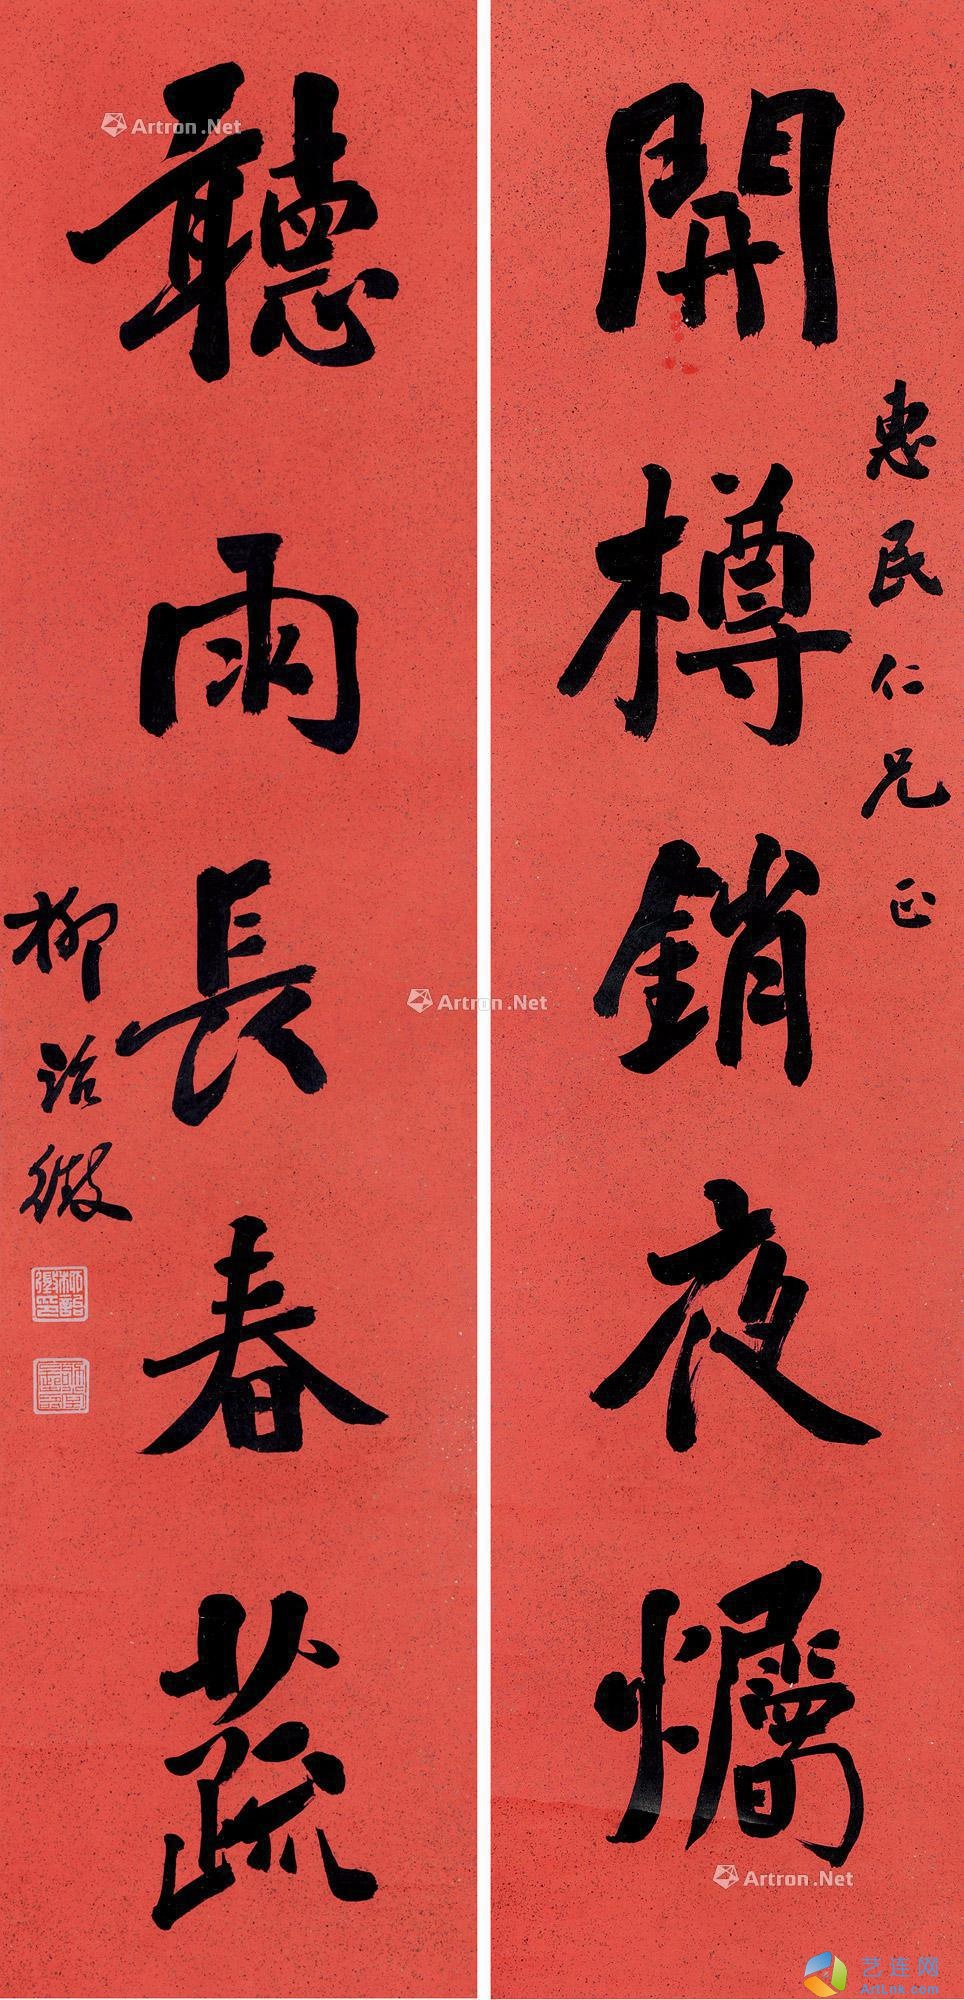 惠民仁兄正
開樽銷夜爥
聽雨長春蔬
柳詒徵
柳詒徵印
Artron.Net
Artron.Net
Artron.Net
艺连网
ArtLnk.com